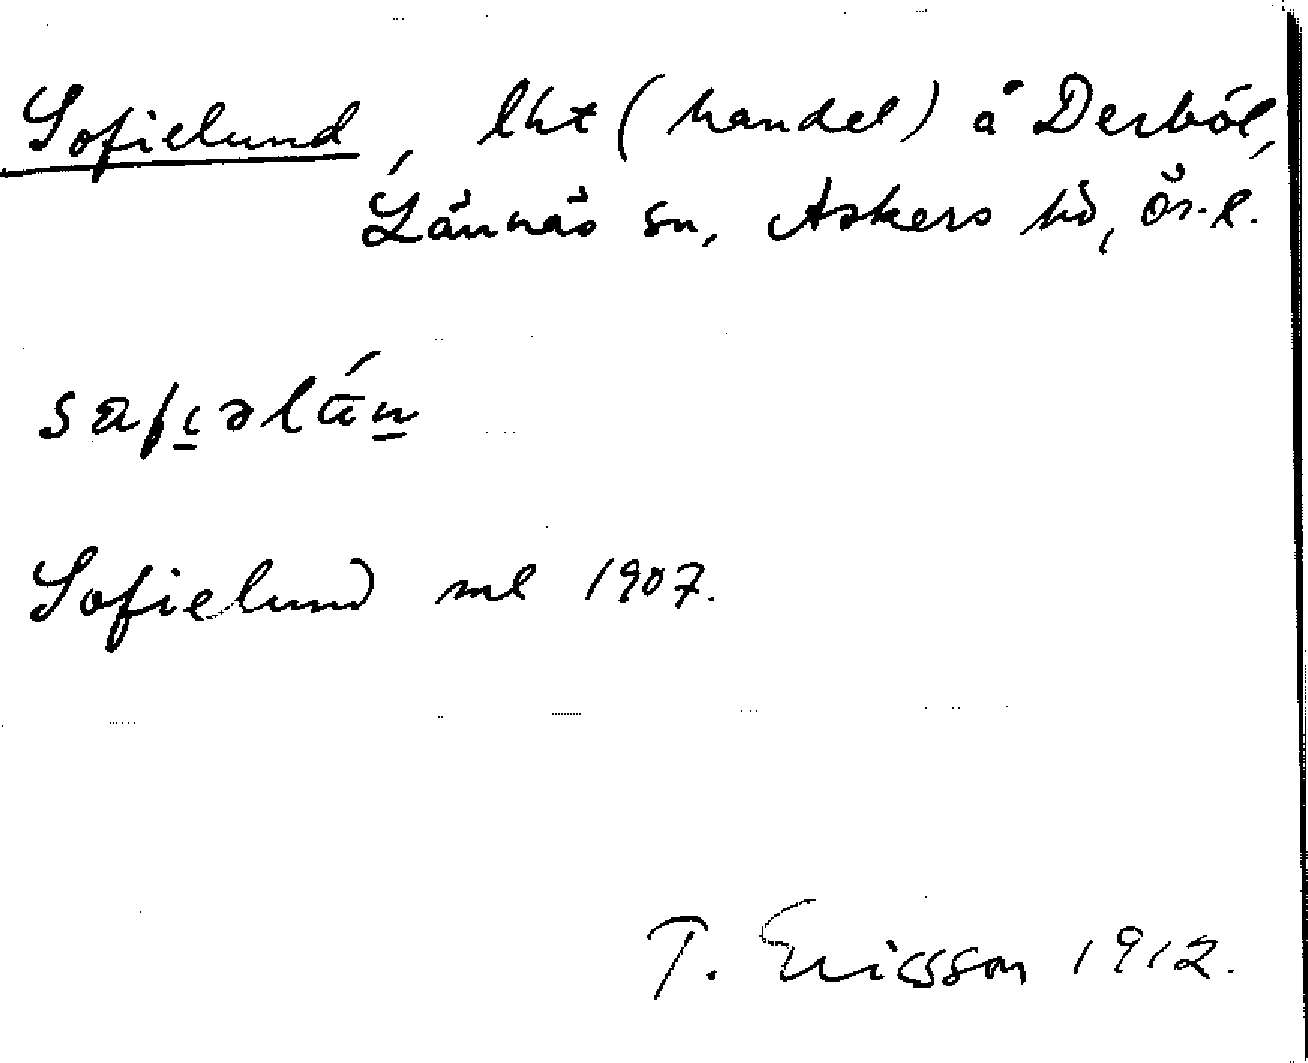 Sofielund, lht (handel) å Derból,
Lännäs sn, Askers hd, Ör. l.
Sofielund ml 1907.
T. Ericsson 1912.